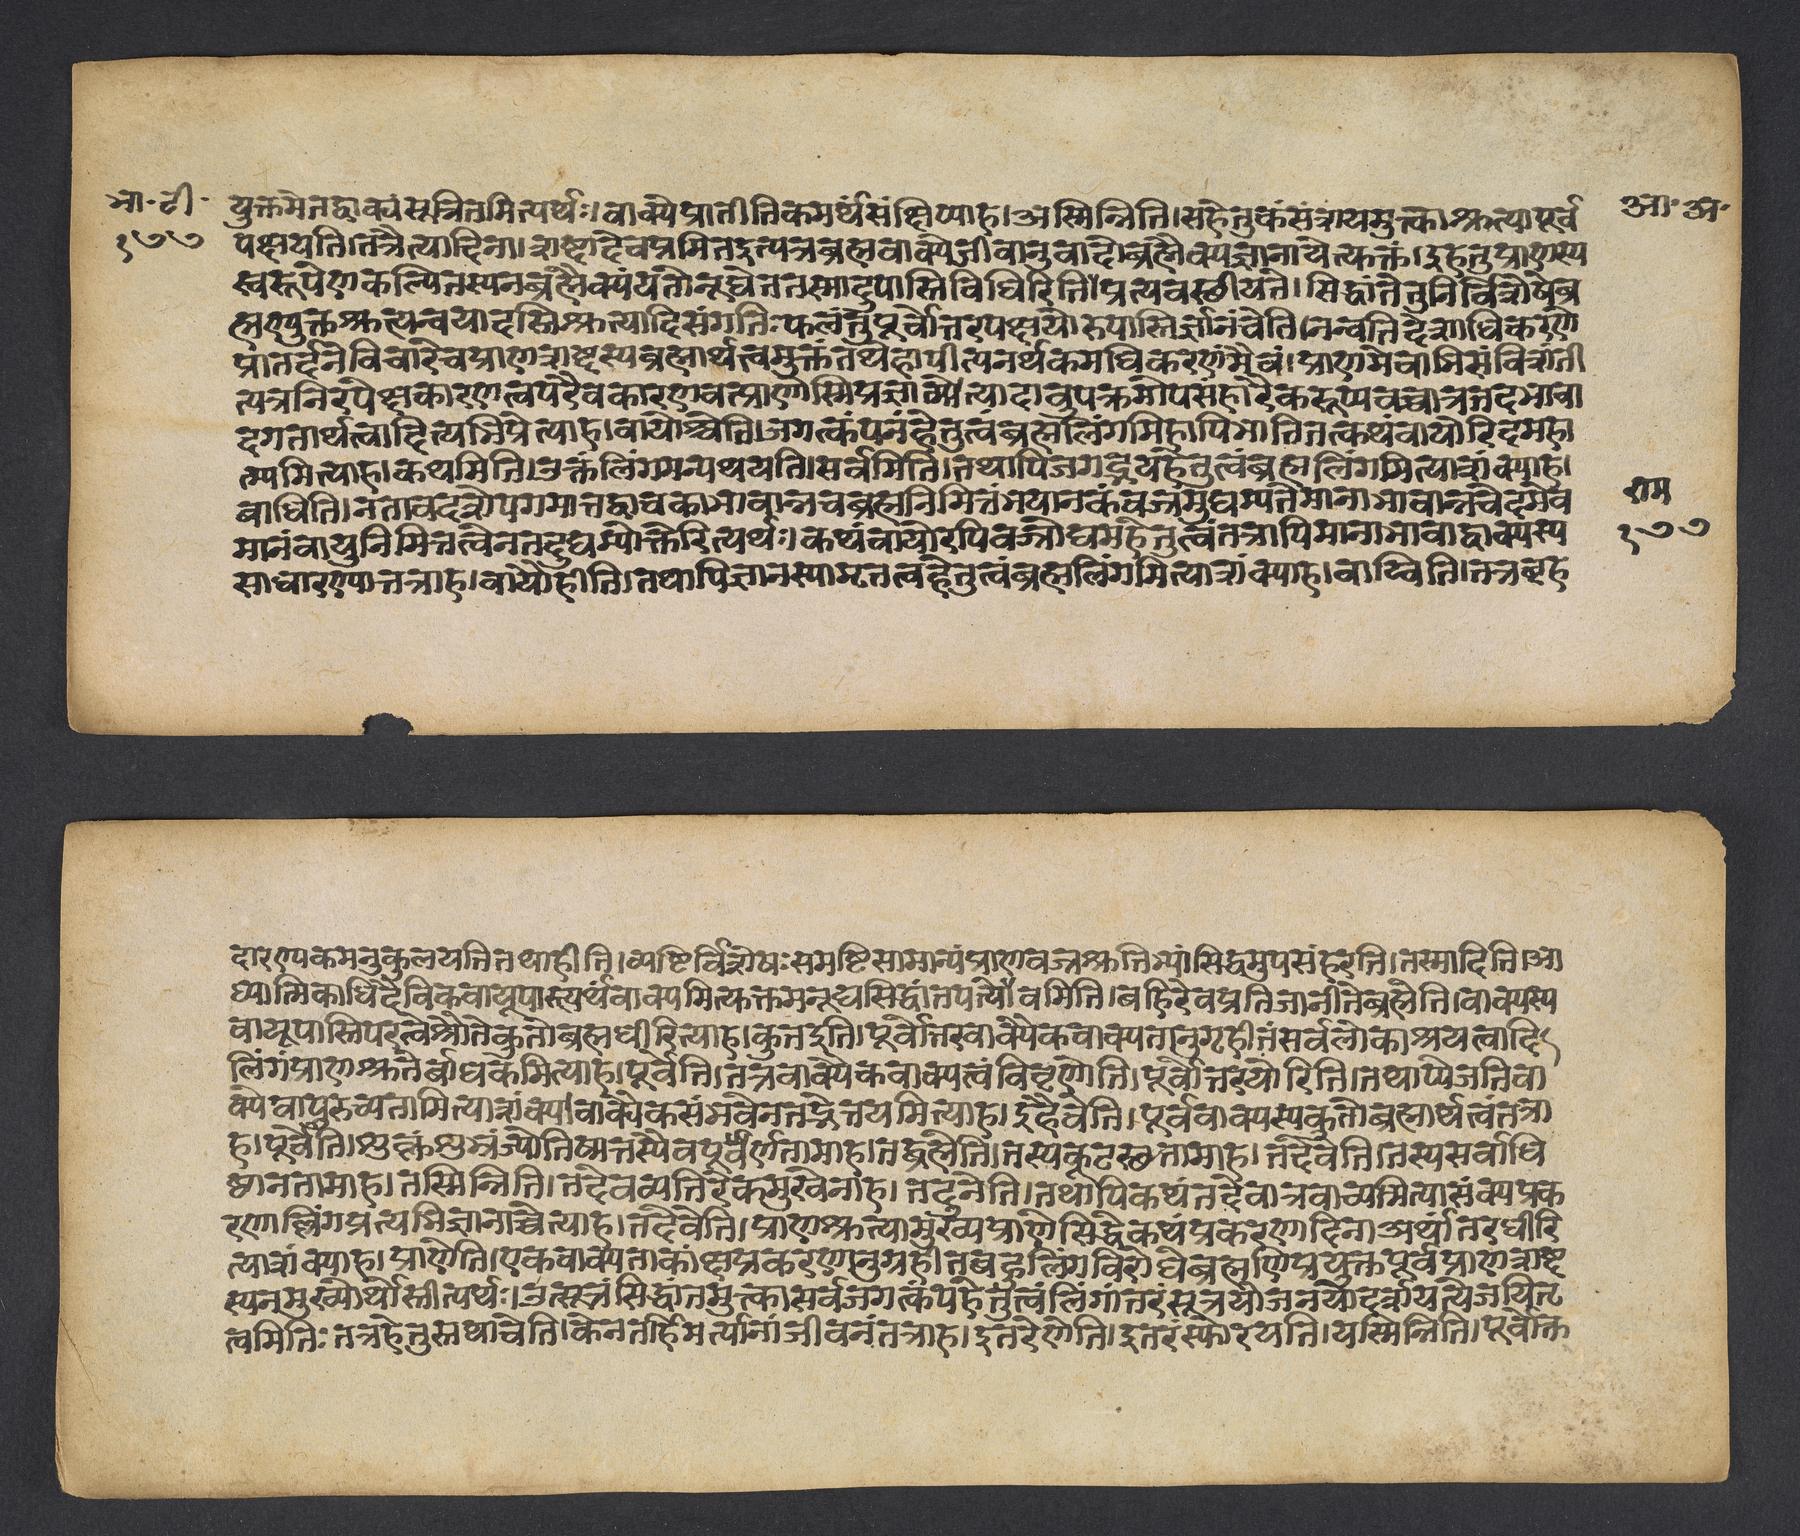 भा॰ टी॰
१७७
आ॰ अ॰
युक्तमेतद्वाक्यंसूत्रितमित्यर्थः। वाक्येप्रातीतिकमर्थंसंक्षिप्याह। अस्मिन्निति। सहेतुकंसंशयमुक्त्वाश्रुत्यापूर्व
पक्षयति। तत्रेत्यादिना। शब्दादेवप्रमितइत्यत्रब्रह्मवाक्येजीवानुवादोब्रह्मैक्यज्ञानायेत्युक्तं। इहतुप्राणस्य
स्वरूपेणकल्पितस्यनब्रह्मैक्यंयतोनूद्येततस्मादुपास्तिविधिरितिप्रत्यवस्थीयते। सिद्धांतेतुनिर्विशेषेब्र
ह्मण्युक्तश्रुत्यन्वयादस्तिश्रुत्यादिसंगतिः फलंतुपूर्वोत्तरपक्षयोरुपास्तिर्ज्ञानंचेति। नन्वतिदेशाधिकरणे
प्रातर्दनेविचारेचप्राणशब्दस्यब्रह्मार्थत्वमुक्तंतथेहापीत्यनर्थकमधिकरणंमैवं। प्राणमेवाभिसंविशंती
त्यत्रनिरपेक्षकारणत्वपरैवकारणवत्प्राणोस्मिप्रज्ञात्मेत्यादावुपक्रमोपसंहारैकरूप्यवच्चात्रतदभावा
दगतार्थत्वादित्यभिप्रेत्याह। वायोश्चेति। जगत्कंपनहेतुत्वंब्रह्मलिंगमिहापिभातितत्कथंवायोरिदमहा
त्म्यमित्याह। कथमिति। उक्तंलिंगमन्यथयति। सर्वमिति। तथापिजगद्भयहेतुत्वंब्रह्मलिंगमित्याशंक्याह।
वाय्विति। नतावदशोपगमात्तद्वाधकाभावान्नचब्रह्मनिमित्तंभयानकंवज्रमुद्यम्यंतेमानाभावान्नचेदमेव
मानंवायुनिमित्तत्वेनतदुद्यम्योक्तेरित्यर्थः। कथंवायोरपिवज्रोद्यमहेतुत्वंतत्रापिमानाभावाद्वाक्यस्य
साधारण्यात्तत्राह। वायौहीति। तथापिज्ञानस्यामृतत्वहेतुत्वंब्रह्मलिंगमित्याशंक्याह। वाय्विति। तत्रबृह
राम
१७७
दारण्यकमनुकुलयतितथाहीति। व्यष्टिर्विशेषः समष्टिसामान्यंप्राणवज्रश्रुतिभ्यांसिद्धमुपसंहरति। तस्मादिति। आ
ध्यात्मिकाधिदैविकवायूपास्त्यर्थंवाक्यमित्युक्तमनूद्यसिद्धांतयत्येवमिति। बहिरेवप्रतिजानीतेब्रह्मेति। वाक्यस्य
वायूपास्तिपरत्वेश्रौतेकुतोब्रह्मधीरित्याह। कुतइति। पूर्वोत्तरवाक्यैकवाक्यतानुगृहीतंसर्वलोकाश्रयत्वादि
लिंगंप्राणश्रुतेर्बाधकमित्याह। पूर्वेति। तत्रवाक्यैकवाक्यत्वंविवृणोति। पूर्वोत्तरयोरिति। तथाप्येजतिवा
क्येवायुरुच्यतामित्याशंक्यावाक्यैकसंभवेनतद्भेत्तयमित्याह। इहैवेति। पूर्ववाक्यस्यकुतोब्रह्मार्थत्वंतत्रा
ह। पूर्वेति। शुक्लंशुभ्रंज्योतिष्मत्तस्यैवपूर्णतामाह। तद्ब्रह्मेति। तस्यकूटस्थतामाह। तदेवेति। तस्यसर्वाधि
ष्ठानतामाह। तस्मिन्निति। तदेवव्यतिरेकमुखेनाह। तदुनेति। तथापिकथंतदेवात्रवाच्यमित्यासंक्यप्रक
रणाल्लिंगप्रत्यभिज्ञानाच्चेत्याह। तदेवेति। प्राणश्रुत्यामुख्यप्राणेसिद्धेकथंप्रकरणादिनाअर्थांतरधीरि
त्याशंक्याह। प्राणेति। एकवाक्यताकांक्षप्रकरणानुग्रहीतबहुलिंगविरोधेब्रह्मणिप्रयुक्तपूर्वप्राणशब्द
स्यनमुख्योर्थोस्तीत्यर्थः। उत्सूत्रंसिद्धांतमुक्त्वासर्वजगत्कंपहेतुत्वंलिंगांतरंसूत्रयोजनयादर्शयत्येजयितृ
त्वमिति: तत्रहेतुस्तथाचेति। केनतर्हिमर्त्यानांजीवनंतत्राह। इतरेणेति। इतरंस्फोरयति। यस्मिन्निति। पूर्वोक्त